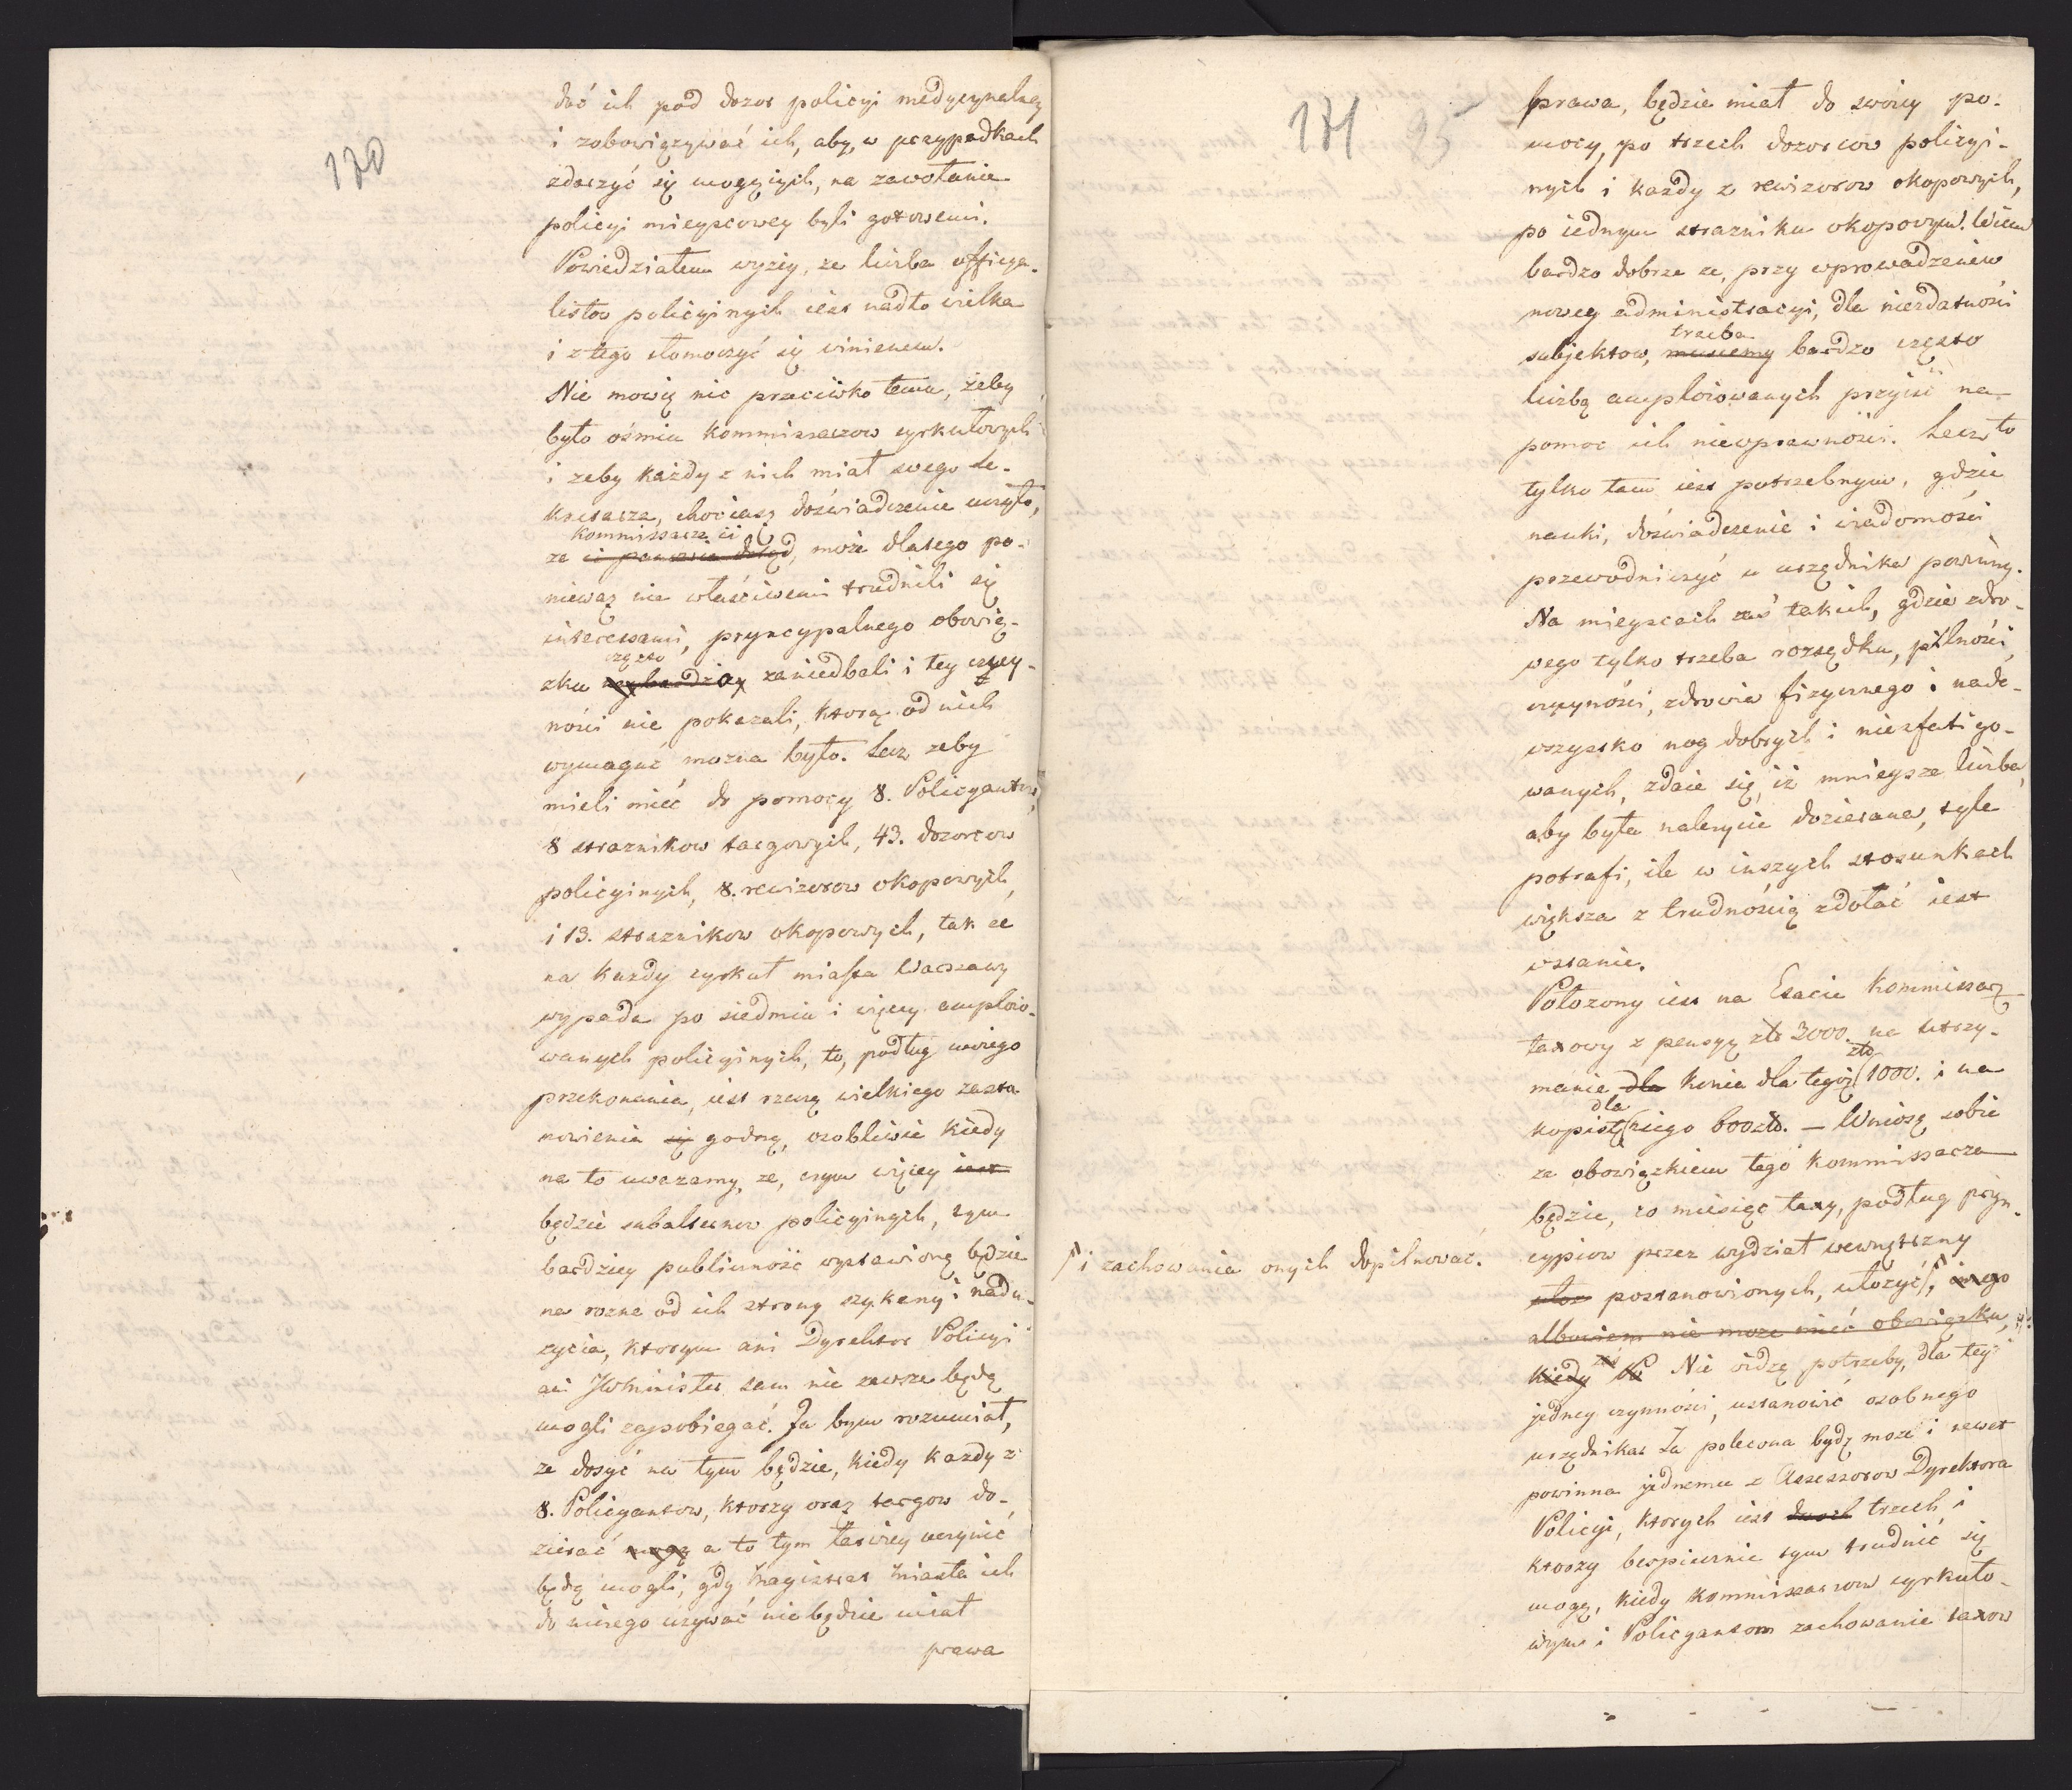 170
dać ich pod dozor policyi medycynalney
i zobowiązywać ich, aby, w przypadkach
zdarzyć się mogących, na zawołanie
policyi mieyscowey byli gotowemi.
Powiedziałem wyżey, ze liczba officya-
listow policyinych iest nadto wielka
i z tego tłomoczyć się winienem.
Nie mowię nic przeciwko temu, żeby
było ośmiu kommissarzow cyrkułowych
i zeby każdy z nich miał swego se-
kretarza, chociasz doświadczenie uczyło,
kommissarze ci
ze ci, może dlatego po-
niewaz nie właściwemi trudnili się
interessami, pryncypalnego obowią-
często
zku naybardziey zaniedbali i tey czyn-
ności nie pokazali, ktorą od nich
wymagać mozna było. Lecz zeby
mieli mieć do pomocy 8. Policyantow,
8 straznikow targowych, 43. dozorcow
policyinych, 8. rewizorow okopowych,
i 13. straznikow okopowych, tak ze
na kazdy cyrkuł miasta Warszawy
wypada po siedmiu i więcey amploio-
wanych policyinych, to, podług moiego
przekonania, iest rzeczą wielkiego zasta-
nowienia się godną, osobliwie kiedy
na to uwazamy, ze, czym więcey iest
będzie subalternow policyinych, tym
bardziey publiczność wystawioną będzie
na rozne od ich strony szykany i nadu-
zycia, ktorym ani Dyrektor Policyi
ani JWMinister sam nie zawsze będą
mogli zapobiegać. Ja bym rozumiał,
ze dosyć na tym będzie, kiedy kazdy z
8. Policyantow, ktorzy oraz targow do-
zierać mogą a to tym łatwiey uczynić
będą mogli, gdy Magistrat Miasta ich
do niczego uzywać nie będzie miał
prawa
171 95
prawa, będzie miał do swoiey po-
mocy, po trzech dozorcow policyi-
nych i każdy z rewizorow okopowych,
po iednym strazniku okopowym. Wiem
bardzo dobrze ze, przy wprowadzeniu
nowey administracyi, dla niezdatności
trzeba
subjektow, musiemy bardzo często
liczbą amploiowanych przyiść na
pomoc ich niewprawności. Lecz to
tylko tam iest potrzebnym, gdzie
nauki, doświadczenie i wiadomości
przewodniczyć u urzędnika powinny.
Na mieyscach zaś takich, gdzie zdro-
wego tylko trzeba rozsądku, pilności,
czynności, zdrowia fizycznego i nade-
wszystko nog dobrych i niezfatigo-
wanych, zdaie się, iż mnieysza liczba,
aby była nalezycie dozierana, tyle
potrafi, ile w inszych stosunkach
większa z trudnością zdołać iest
wstanie.
Położony iest na Etacie Kommissarz
taxowy z pensyą złt 3000. na utrzy-
złt
manie dla konia dla tegoż 1000. i na
dla
kopistę niego 600 złt. — Wnioszę sobie
ze obowiązkiem tego kommissarza
będzie, co miesiąc taxy, podług pryn-
cypiow przez wydział wewnętrzny
postanowionych, ułozyć, innego
i zachowania onych dopilnować.
albowiem nie moze mieć obowiązku,
kiedy zaś Nie widzę potrzeby, dla tey
jedney czynności, ustanowić osobnego
urzędnika. Ta polecona bydz może i nawet
powinna jednemu z Assessorow Dyrektora
Policyi, ktorych iest dwoch trzech i
ktorzy bespiecznie tym trudnić się
mogą, kiedy kommissarzom cyrkuło-
wym i Policyantom zachowanie taxow